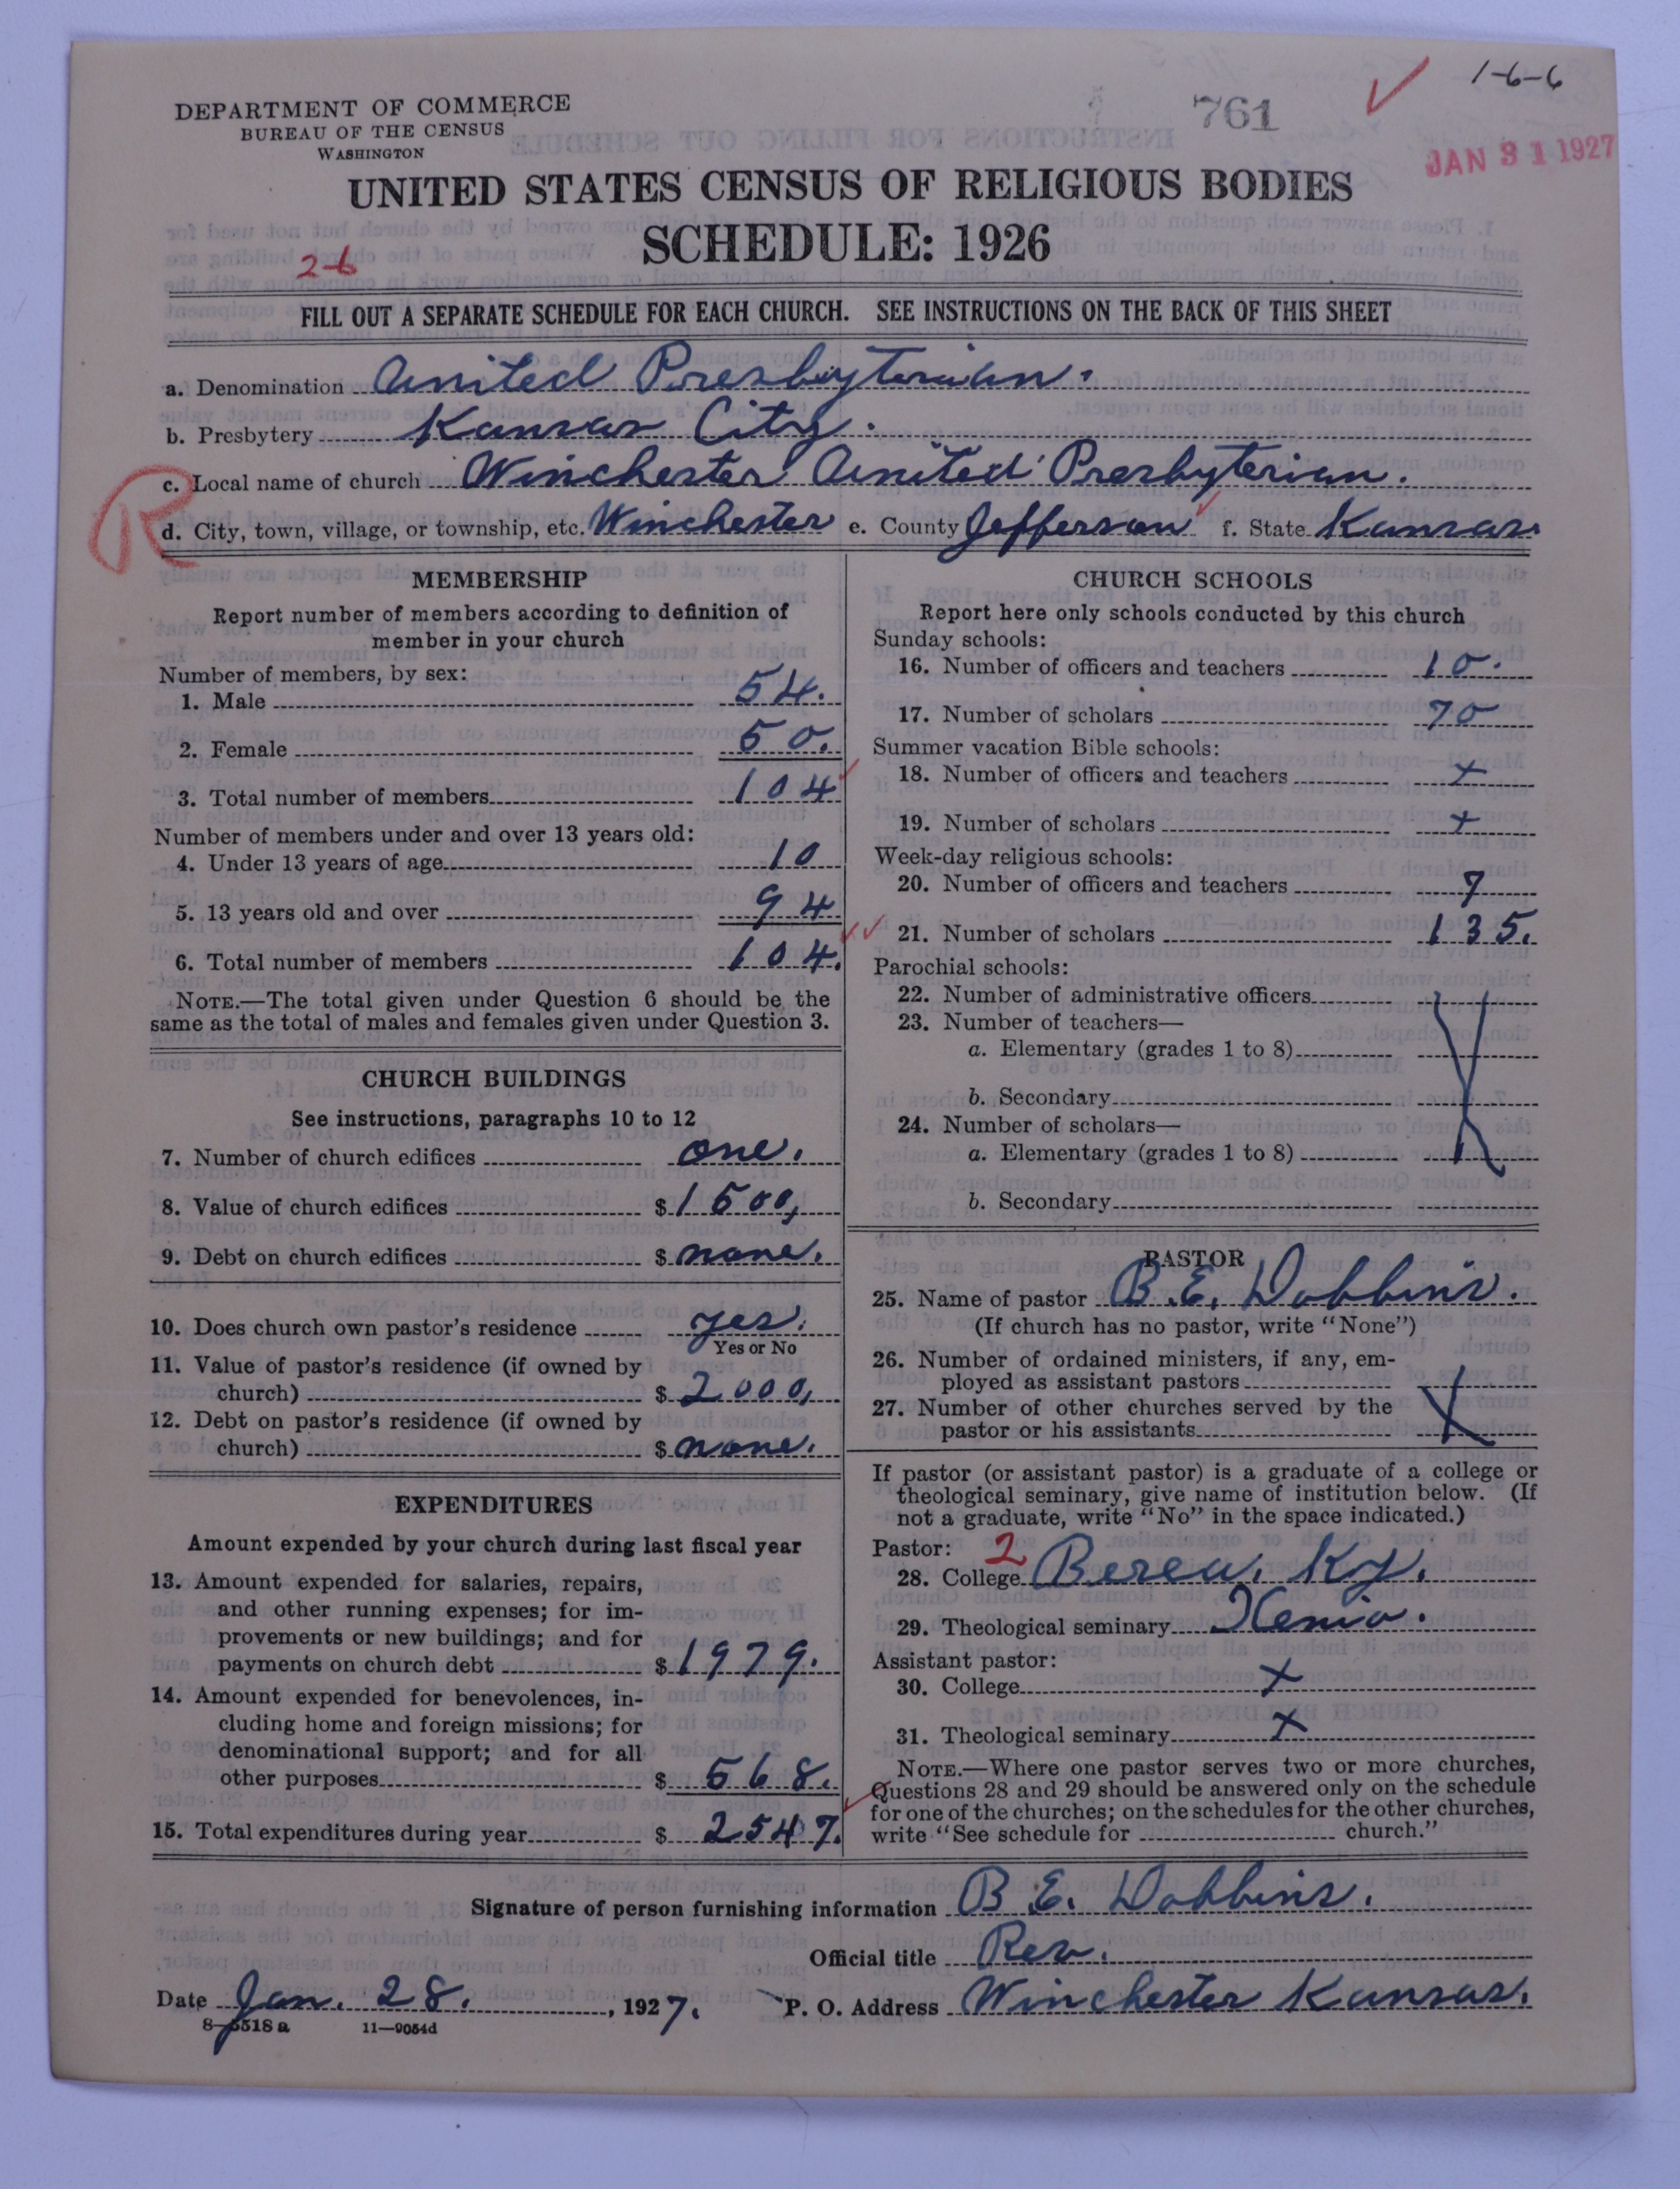 1-6-6
761
JAN 31 1927
DEPARTMENT OF COMMERCE
BUREAU OF THE CENSUS
WASHINGTON
UNITED STATES CENSUS OF RELIGIOUS BODIES
SCHEDULE: 1926
2-6
FILL OUT A SEPARATE SCHEDULE FOR EACH CHURCH. SEE INSTRUCTIONS ON THE BACK OF THIS SHEET
a. Denomination United Presbyterian.
b. Presbytery Kansas City.
R
c. Local name of church Winchester United Presbyterian.
d. City, town, village, or township, etc. Winchester e. County Jefferson f. State Kansas.
MEMBERSHIP
Report number of members according to definition of
member in your church
Number of members, by sex:
1. Male 54.
2. Female 50.
3. Total number of members 104
Number of members under and over 13 years old:
4. Under 13 years of age 10
5. 13 years old and over 94
6. Total number of members 104.
NOTE.—The total given under Question 6 should be the
same as the total of males and females given under Question 3.
CHURCH BUILDINGS
See instructions, paragraphs 10 to 12
7. Number of church edifices one.
8. Value of church edifices $ 1500,
9. Debt on church edifices $ none.
10. Does church own pastor's residence yes.
Yes or No
11. Value of pastor's residence (if owned by
church) $ 2000,
12. Debt on pastor's residence (if owned by
church) $ none.
EXPENDITURES
Amount expended by your church during last fiscal year
13. Amount expended for salaries, repairs,
and other running expenses; for im-
provements or new buildings; and for
payments on church debt $ 1979.
14. Amount expended for benevolences, in-
cluding home and foreign missions; for
denominational support; and for all
other purposes $ 568.
15. Total expenditures during year $ 2547.
CHURCH SCHOOLS
Report here only schools conducted by this church
Sunday schools:
16. Number of officers and teachers 10.
17. Number of scholars 70
Summer vacation Bible schools:
18. Number of officers and teachers x
19. Number of scholars x
Week-day religious schools:
20. Number of officers and teachers 7
21. Number of scholars 135.
Parochial schools:
22. Number of administrative officers
23. Number of teachers—
a. Elementary (grades 1 to 8)
b. Secondary
24. Number of scholars—
a. Elementary (grades 1 to 8)
b. Secondary
PASTOR
25. Name of pastor B. E. Dobbins.
(If church has no pastor, write "None")
26. Number of ordained ministers, if any, em-
ployed as assistant pastors
27. Number of other churches served by the
pastor or his assistants X
If pastor (or assistant pastor) is a graduate of a college or
theological seminary, give name of institution below. (If
not a graduate, write "No" in the space indicated.)
Pastor: 2
28. College Berea. Ky.
29. Theological seminary Xenia.
Assistant pastor:
30. College x
31. Theological seminary x
NOTE.—Where one pastor serves two or more churches,
Questions 28 and 29 should be answered only on the schedule
for one of the churches; on the schedules for the other churches,
write "See schedule for church."
Signature of person furnishing information B. E. Dobbins.
Official title Rev.
Date Jan. 28., 1927. P. O. Address Winchester Kansas.
8-5518 a 11—9054d